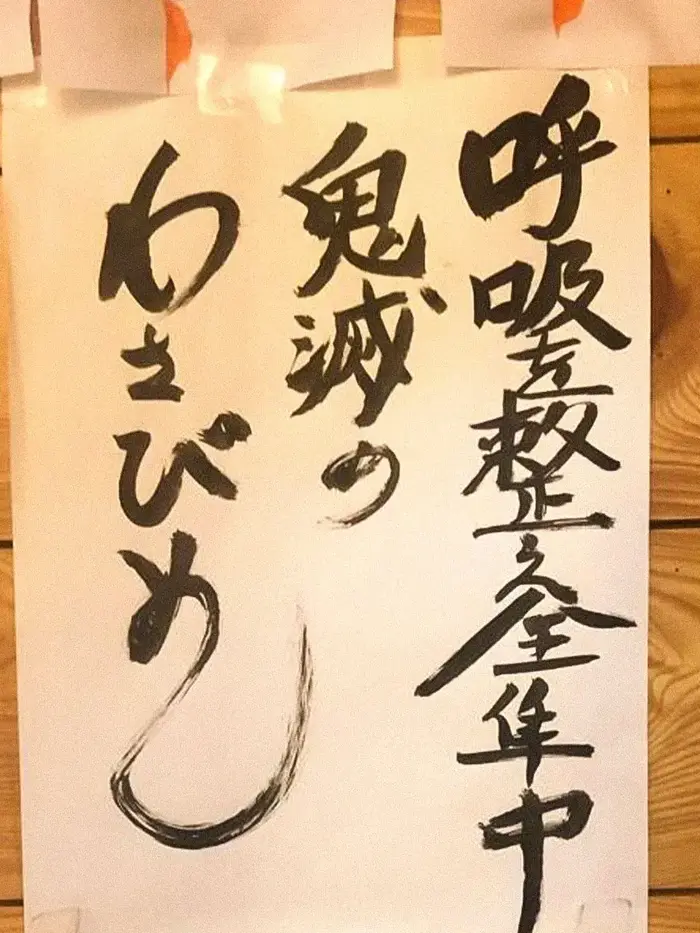 呼吸を整え全隼中
鬼滅の
わさびめし